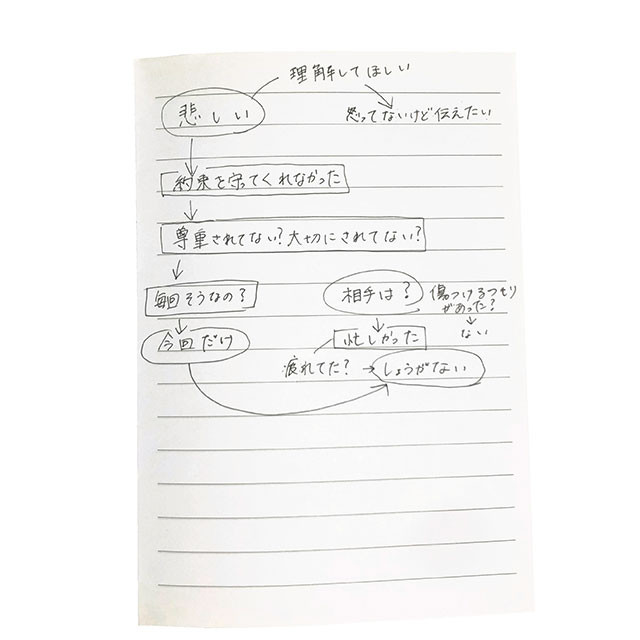 理解してほしい
悲しい
怒ってないけど伝えたい
約束を守ってくれなかった
尊重されてない?大切にされてない?
毎回そうなの?
相手は?
傷つけるつもり
があった?
今回だけ
忙しかった
ない
疲れてた?
しょうがない